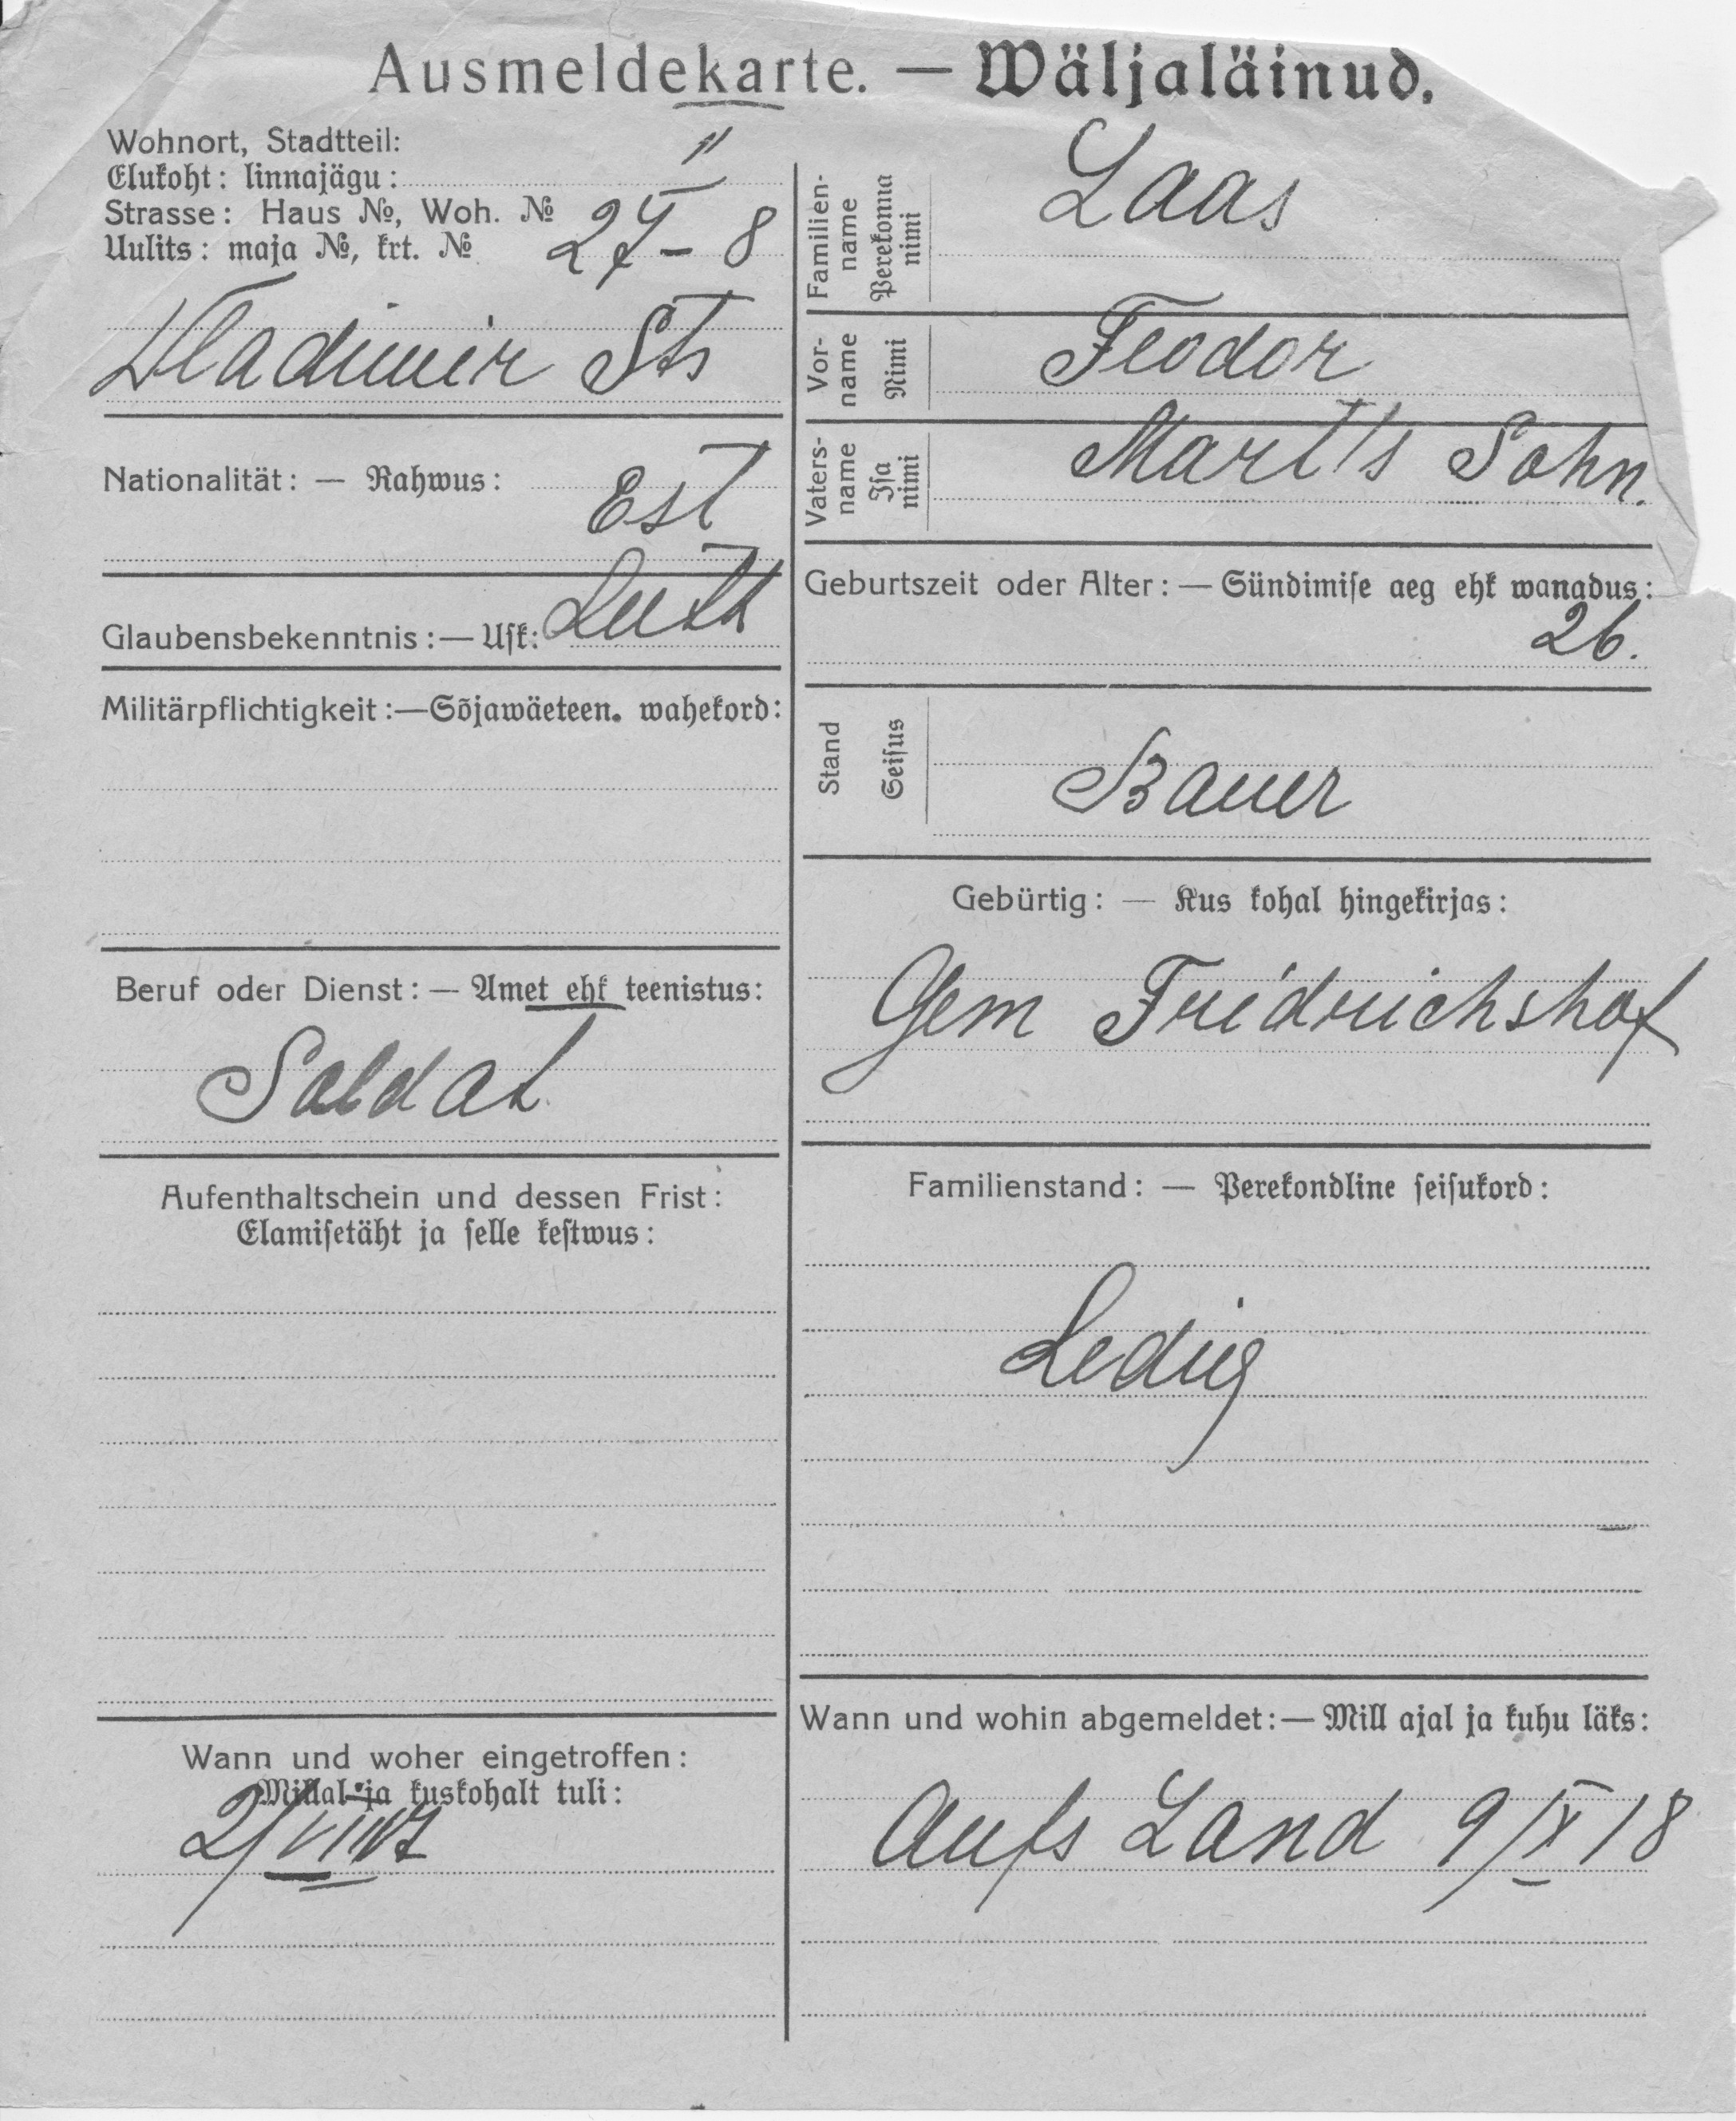 Ausmeldekarte. — Wäljaläinud.
Wohnort, Stadtteil:
Elukoht: linnajägu: II
Strasse: Haus №, Woh. №
Uulits: maja №, krt. № 27 – 8
Wladimir Sts
Nationalität: — Rahwus:
Est
Glaubensbekenntnis: — Usk: Luth
Militärpflichtigkeit: — Sõjawäeteen. wahekord:
Beruf oder Dienst: — Amet ehk teenistus:
Soldat
Aufenthaltschein und dessen Frist:
Elamisetäht ja selle kestwus:
Wann und woher eingetroffen:
Millal ja kuskohalt tuli:
Familien-
name
Perekonna
nimi
Laas
Vor-
name
Nimi
Feodor
Vaters-
name
Isa
nimi
Mart's Sohn.
Geburtszeit oder Alter: — Sündimise aeg ehk wanadus:
26.
Stand
Seisus
Bauer
Gebürtig: — Kus kohal hingekirjas:
Gem Friedrichshof
Familienstand: — Perekondline seisukord:
Ledig
Wann und wohin abgemeldet: — Mill ajal ja kuhu läks:
Aufs Land 9/X 18